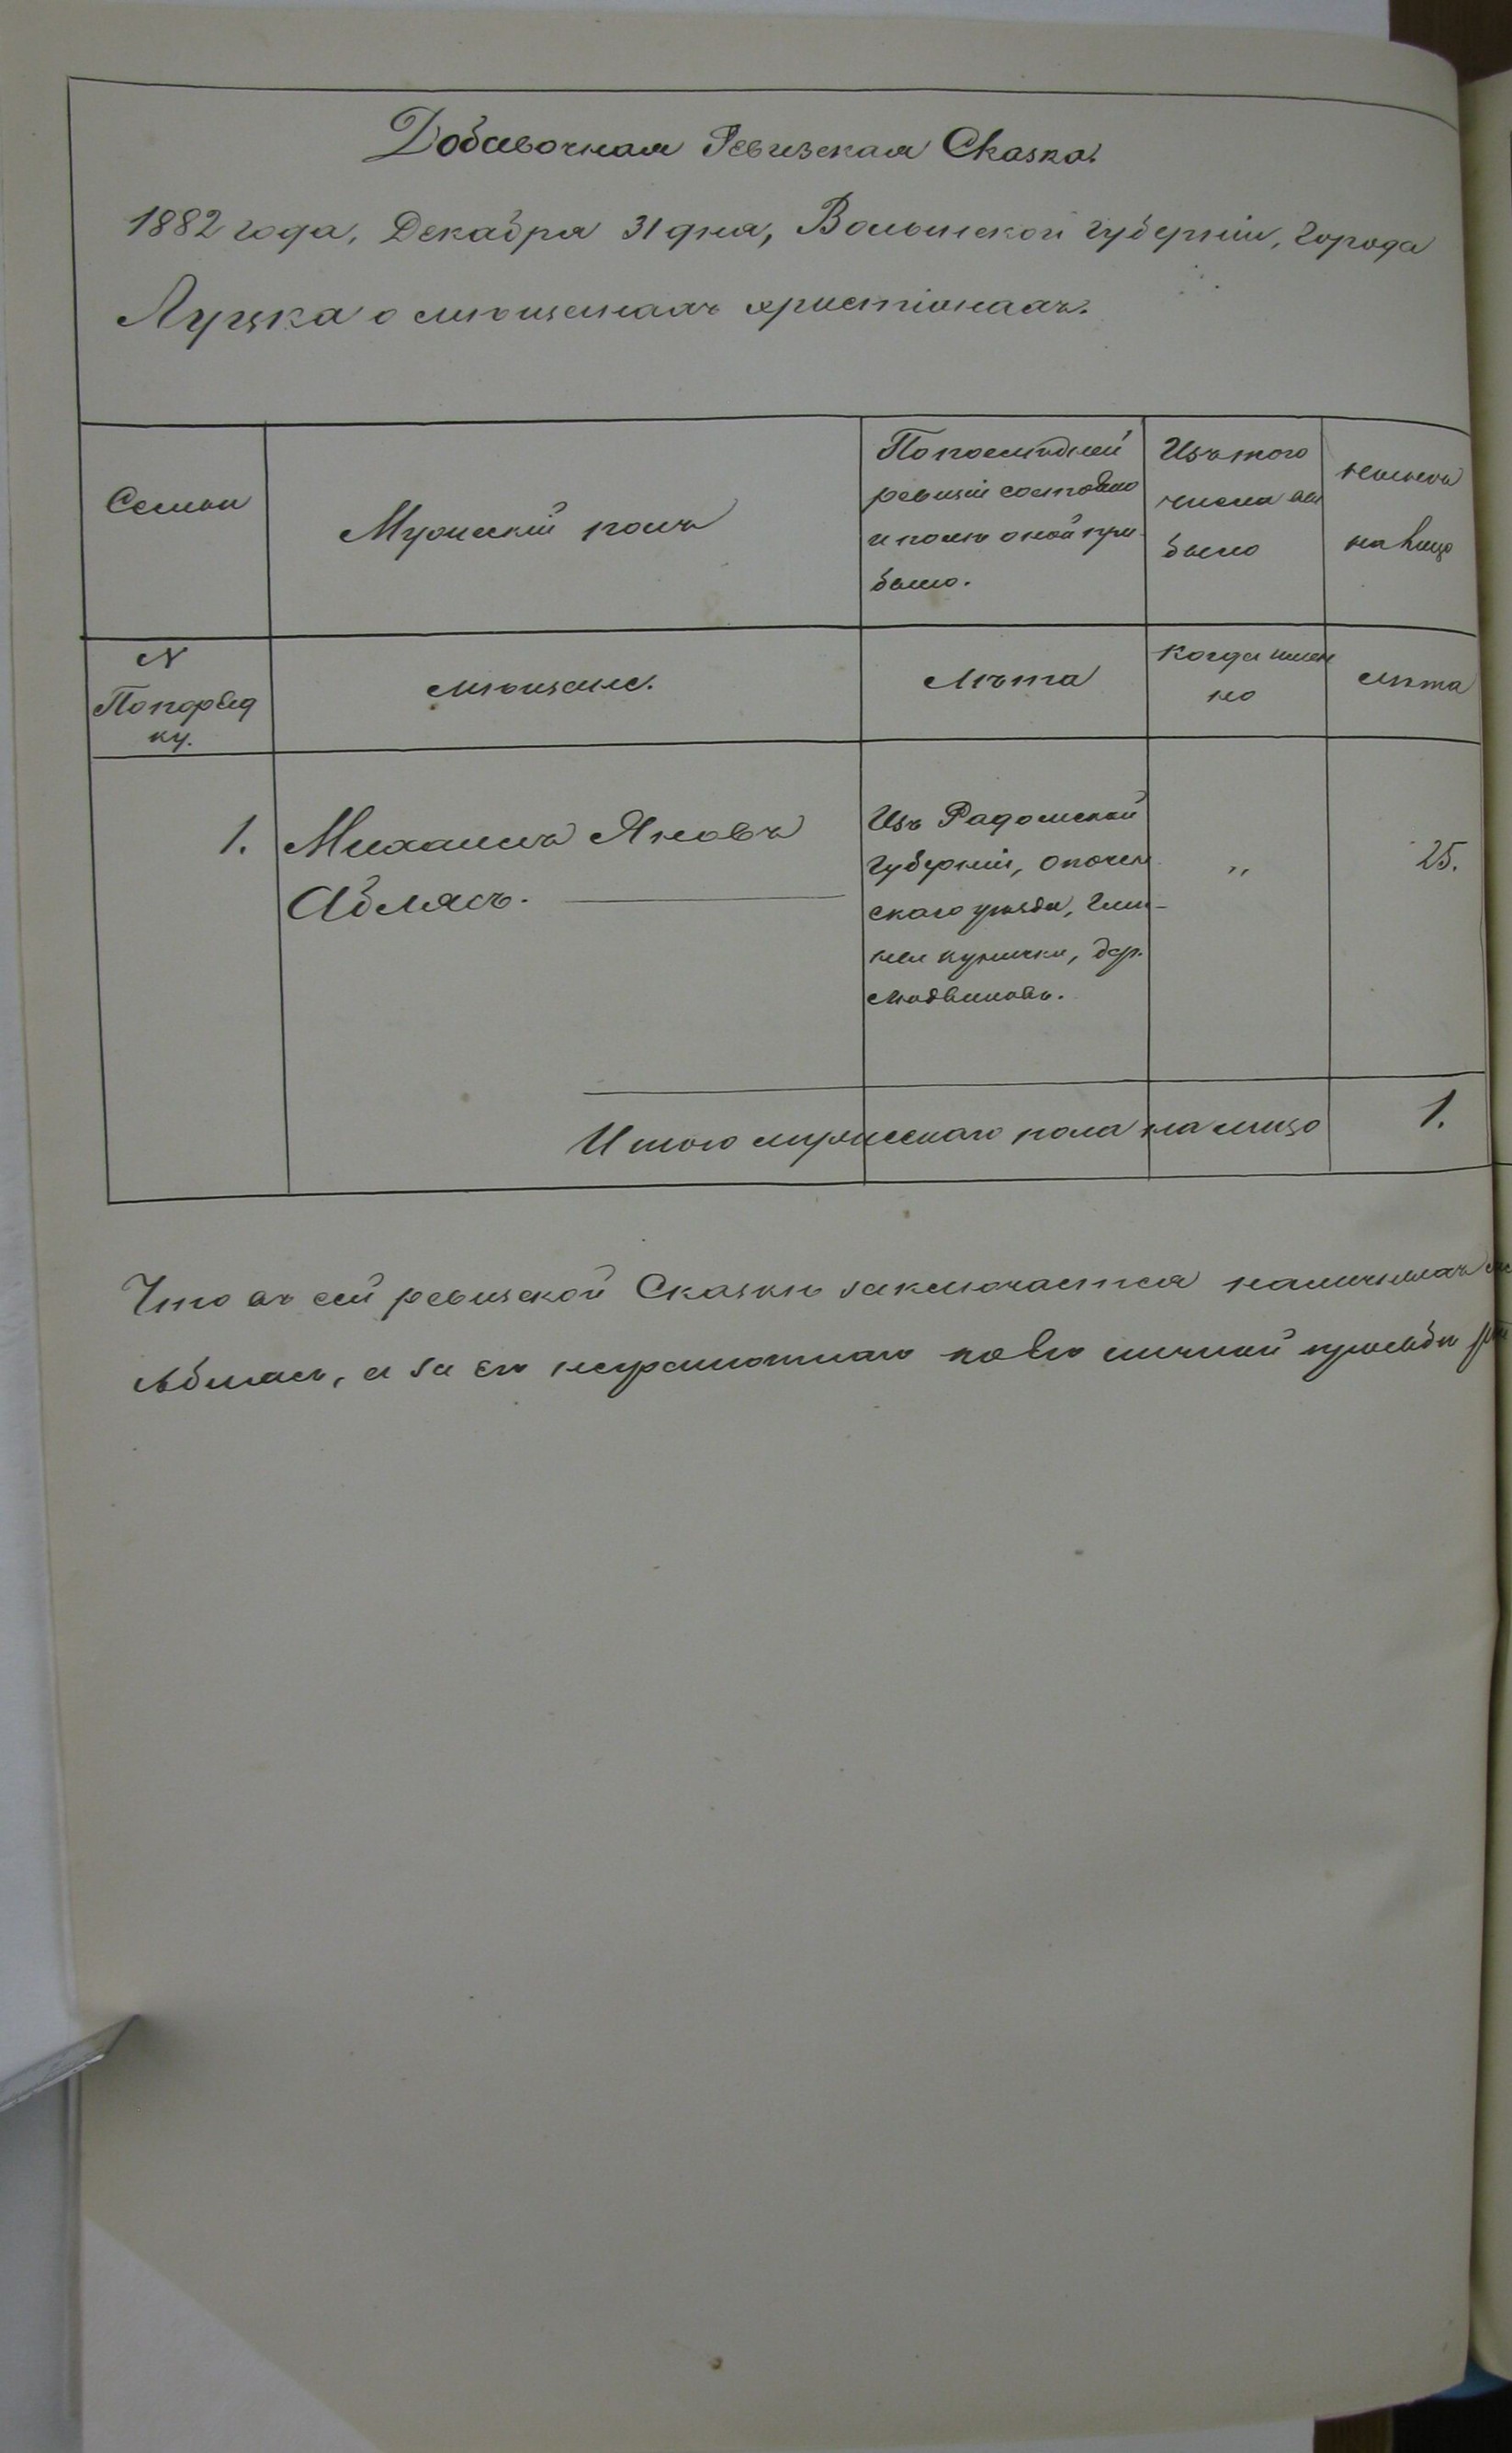 Добавочная Ревизская Сказка.
1882 года, Декабря 31 дня, Волынской губерніи, города
Луцка о мѣщанахъ христіанахъ.
Семьи
Мужескій полъ
По последней
ревизіи состояло
и после оной при
было.
Изъ того
числа вы
было
нынѣ
на лицо
N
По поряд
ку.
мѣщане.
Лѣта
Когда имен
но
лѣта
1.
Михаилъ Яновъ
Аблясъ.
Изъ Радомской
губерніи, опочен
скаго уѣзда, гми-
ны дер.
"
25.
Итого мужескаго пола на лицо
1.
Что въ сей ревизской Сказкѣ заключается наличныхъ
Аблясъ, а за его неграмотнаго по его личной прозьбѣ